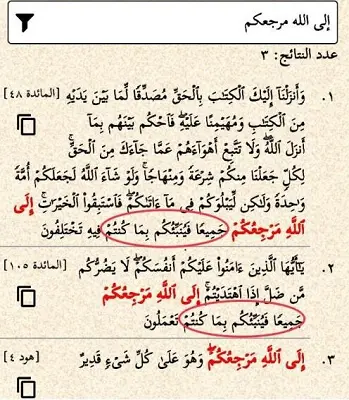 إلى الله مرجعكم
عدد النتائج: ٣
١. وَأَنزَلْنَآ إِلَيْكَ ٱلْكِتَٰبَ بِٱلْحَقِّ مُصَدِّقًا لِّمَا بَيْنَ يَدَيْهِ [المائدة ٤٨]
مِنَ ٱلْكِتَٰبِ وَمُهَيْمِنًا عَلَيْهِ ۖ فَٱحْكُم بَيْنَهُم بِمَآ
أَنزَلَ ٱللَّهُ ۖ وَلَا تَتَّبِعْ أَهْوَآءَهُمْ عَمَّا جَآءَكَ مِنَ ٱلْحَقِّ ۚ
لِكُلٍّ جَعَلْنَا مِنكُمْ شِرْعَةً وَمِنْهَاجًا ۚ وَلَوْ شَآءَ ٱللَّهُ لَجَعَلَكُمْ أُمَّةً
وَٰحِدَةً وَلَٰكِن لِّيَبْلُوَكُمْ فِى مَآ ءَاتَىٰكُمْ ۖ فَٱسْتَبِقُوا۟ ٱلْخَيْرَٰتِ ۚ إِلَى
ٱللَّهِ مَرْجِعُكُمْ جَمِيعًا فَيُنَبِّئُكُم بِمَا كُنتُمْ فِيهِ تَخْتَلِفُونَ
٢. يَٰٓأَيُّهَا ٱلَّذِينَ ءَامَنُوا۟ عَلَيْكُمْ أَنفُسَكُمْ ۖ لَا يَضُرُّكُم [المائدة ١٠٥]
مَّن ضَلَّ إِذَا ٱهْتَدَيْتُمْ ۚ إِلَى ٱللَّهِ مَرْجِعُكُمْ
جَمِيعًا فَيُنَبِّئُكُم بِمَا كُنتُمْ تَعْمَلُونَ
٣. إِلَى ٱللَّهِ مَرْجِعُكُمْ ۖ وَهُوَ عَلَىٰ كُلِّ شَىْءٍ قَدِيرٌ [هود ٤]